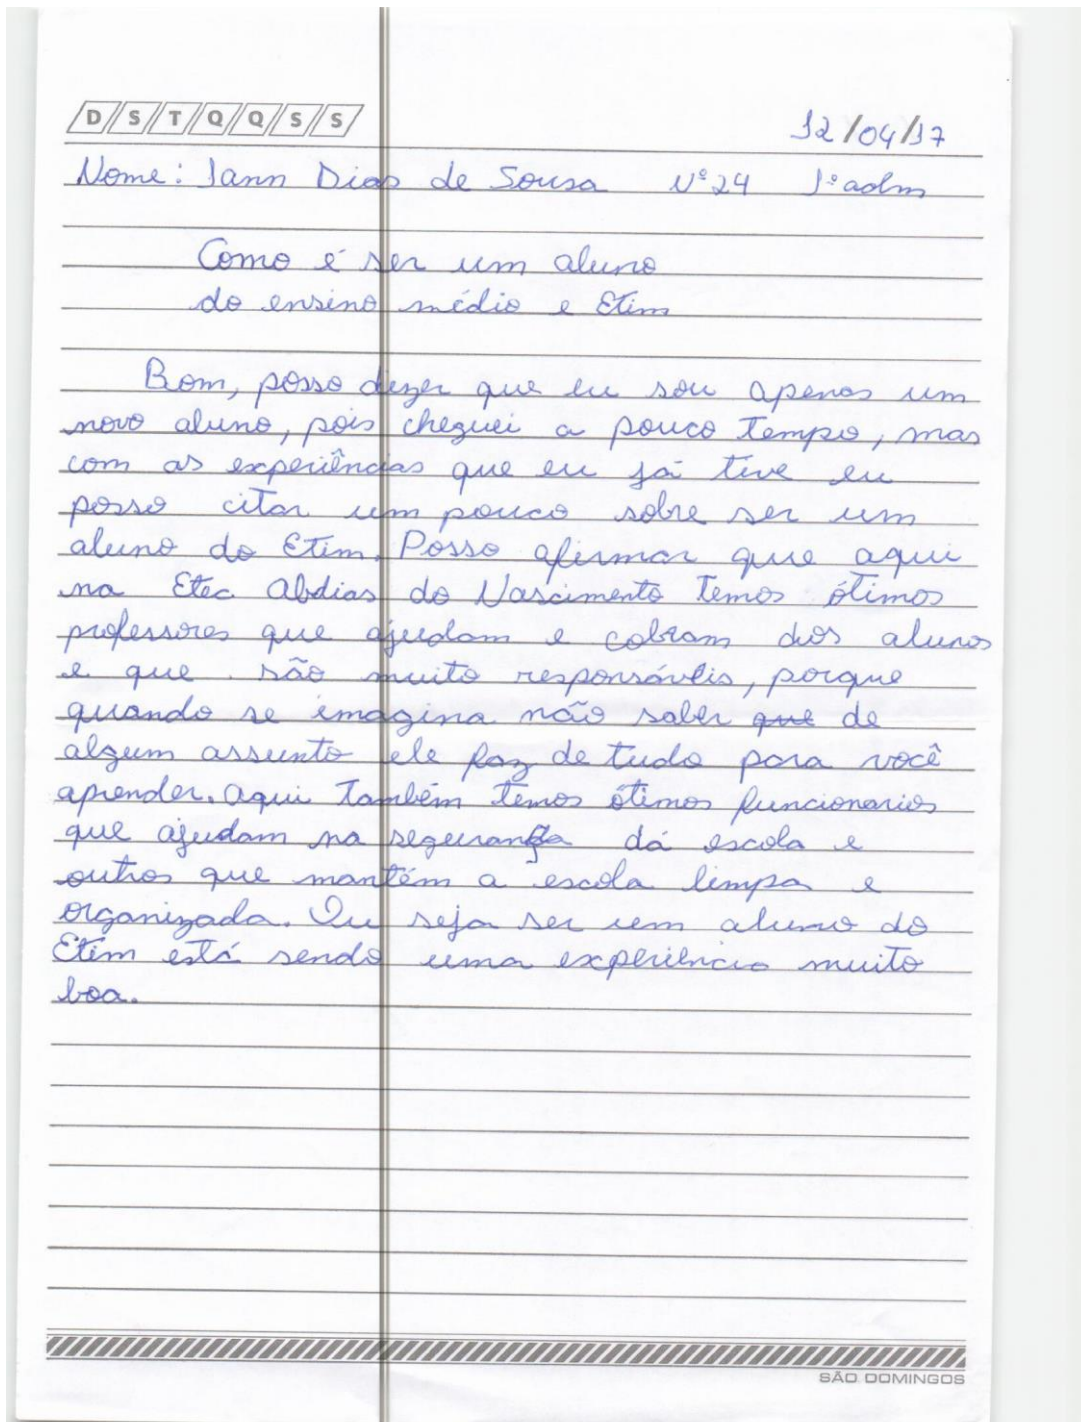 D S T Q Q S S
12/04/17
Nome: Iann Dias de Sousa Nº 24 1º adm
Como é ser um aluno
do ensino médio e Etim
Bom, posso dizer que eu sou apenas um
novo aluno, pois cheguei a pouco tempo, mas
com as experiências que eu já tive eu
posso citar um pouco sobre ser um
aluno do Etim. Posso afirmar que aqui
na Etec Abdias do Nascimento temos ótimos
professores que ajudam e cobram dos alunos
e que são muito responsáveis, porque
quando se imagina não saber que de
algum assunto ele faz de tudo para você
aprender. aqui também temos ótimos funcionarios
que ajudam na segurança dá escola e
outros que mantém a escola limpa e
organizada. Ou seja ser um aluno do
Etim está sendo uma experiência muito
boa.
SÃO DOMINGOS